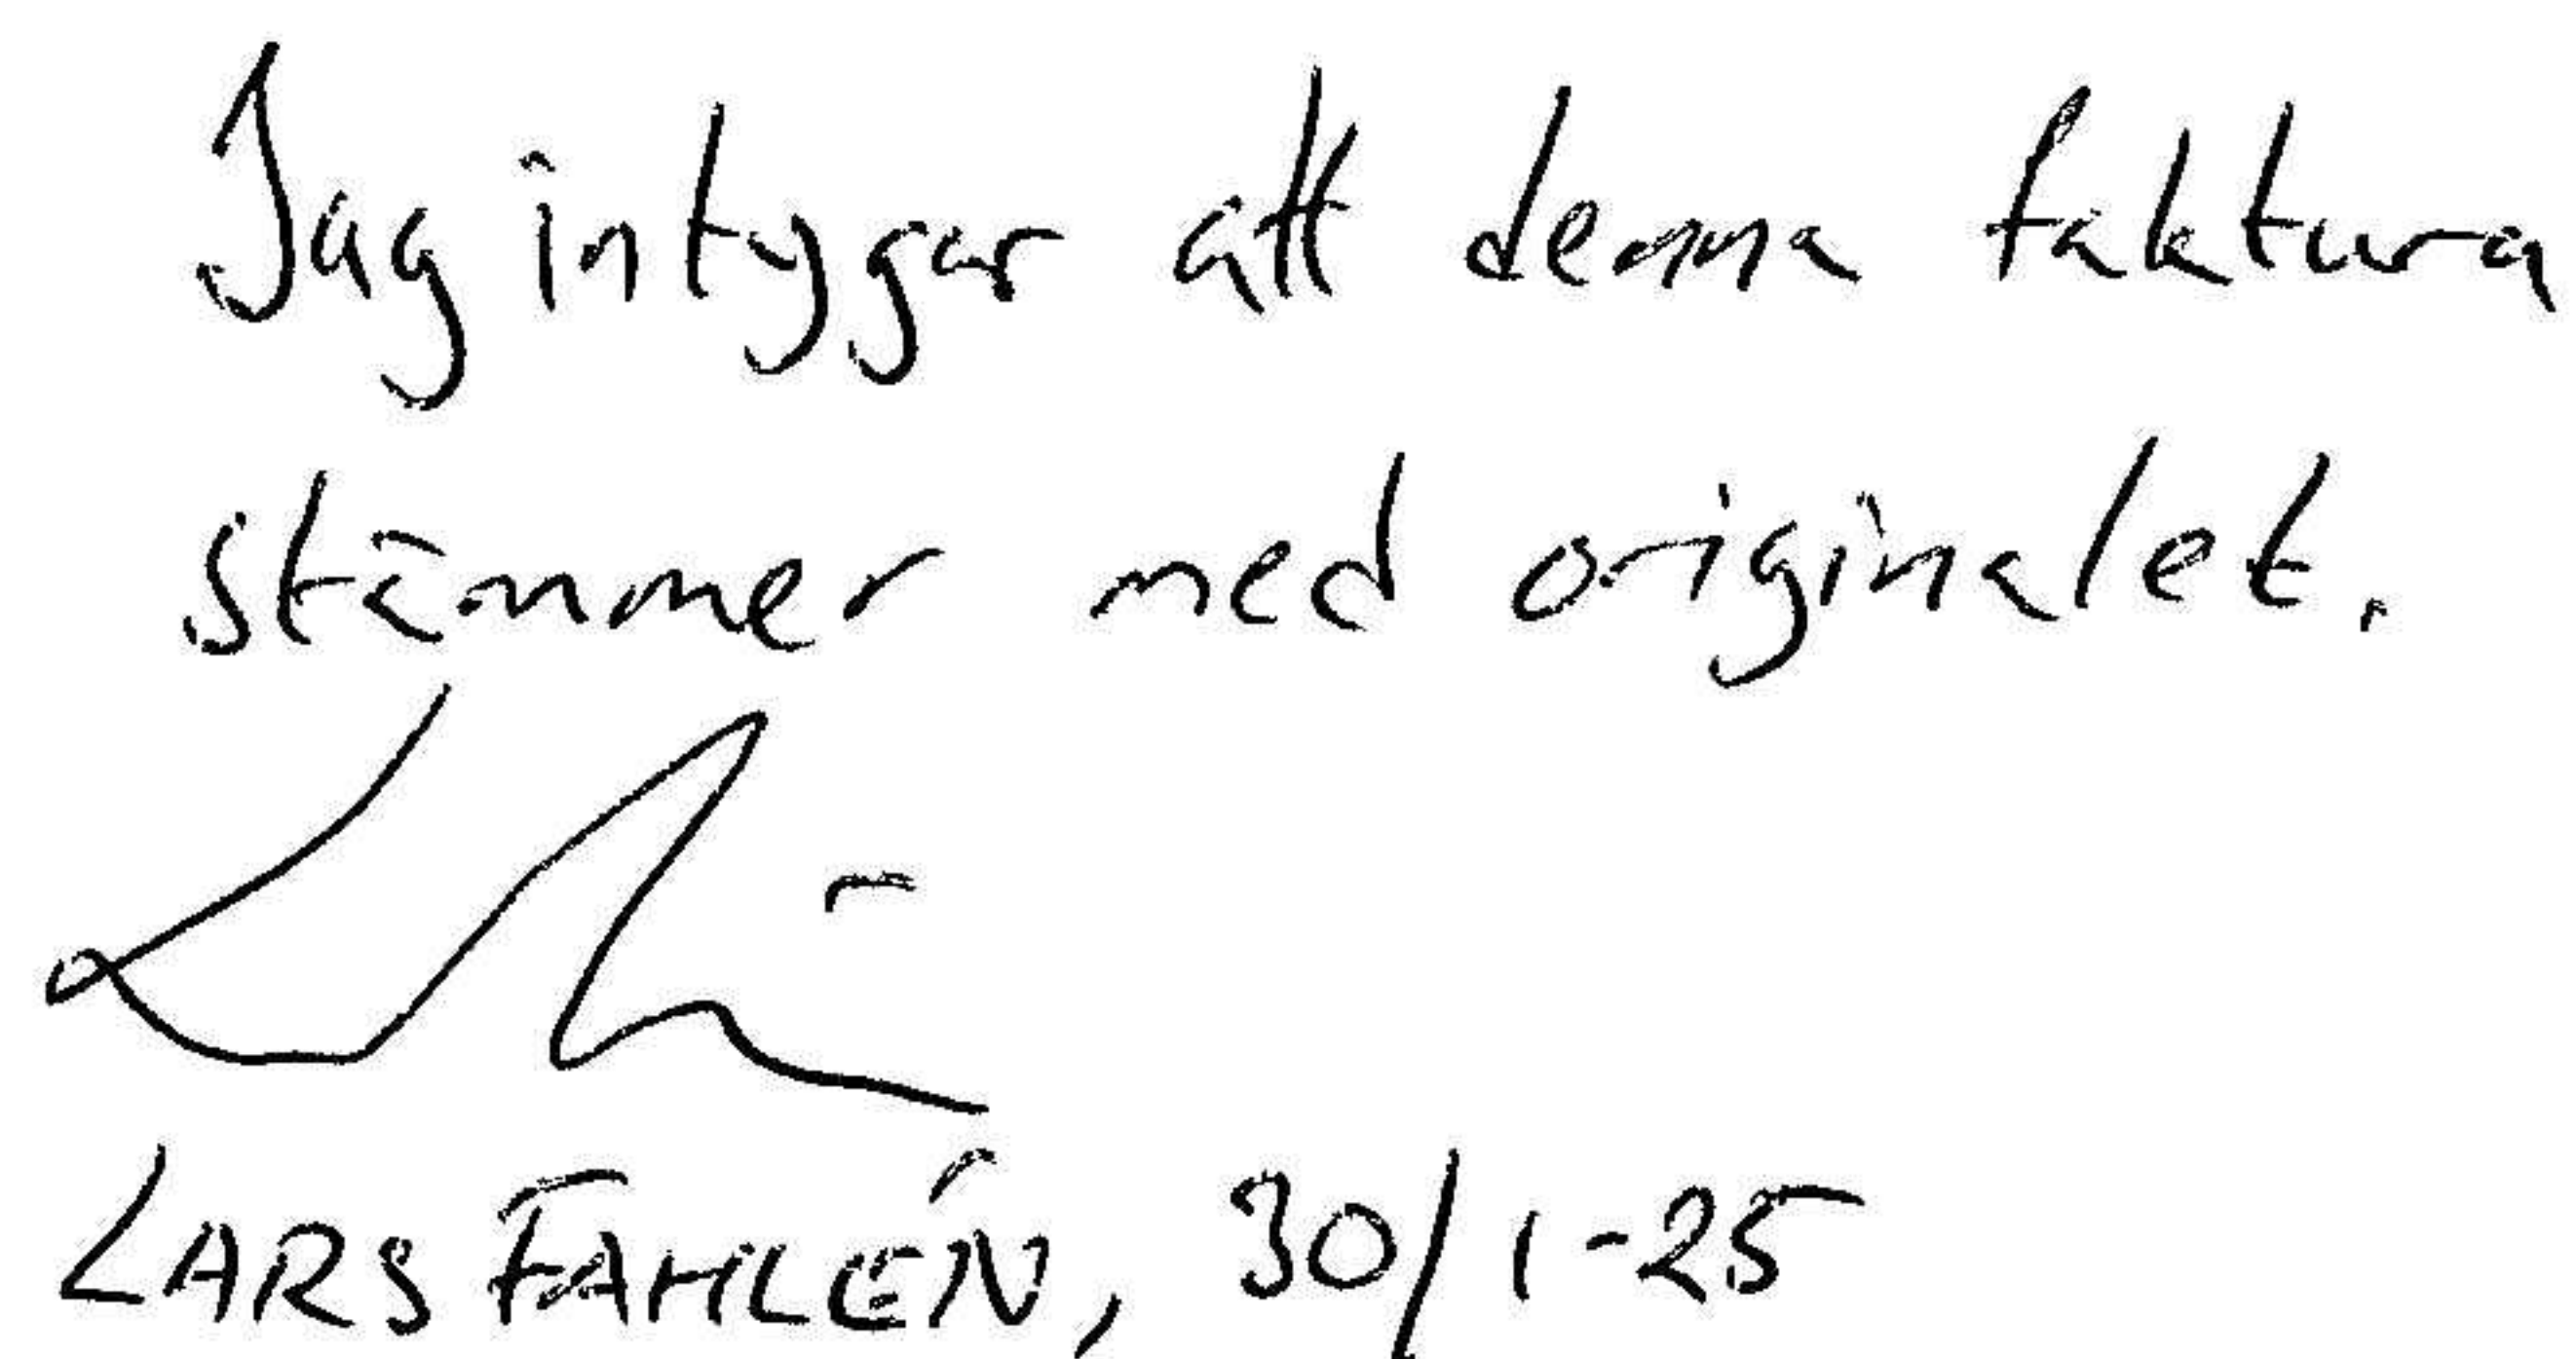 Jag intygar att denna faktura
stämmer med originalet.
LARS FAHLÉN, 30/1-25